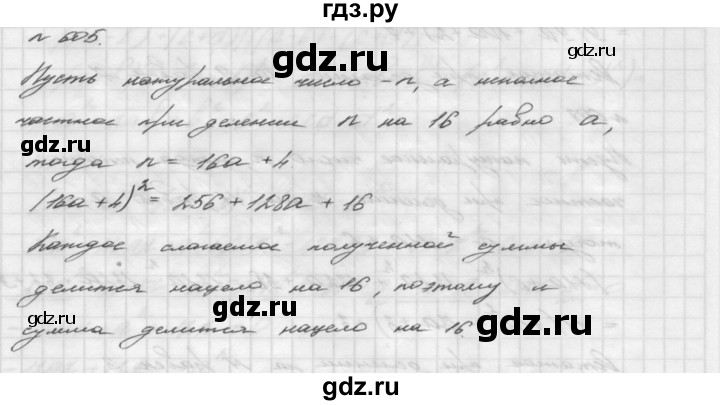 гдз.ру
n 605.
Пусть натуральное число - n, а неполное
частное при делении n на 16 равно a,
тогда n = 16a + 4
(16a + 4)² = 256 + 128a + 16
Каждое слагаемое полученной суммы
делится нацело на 16, поэтому и
сумма делится нацело на 16
gdz.ru
gdz.ru
gdz.ru
gdz.ru
gdz.ru
gdz.ru
gdz.ru
gdz.ru
gdz.ru
gdz.ru